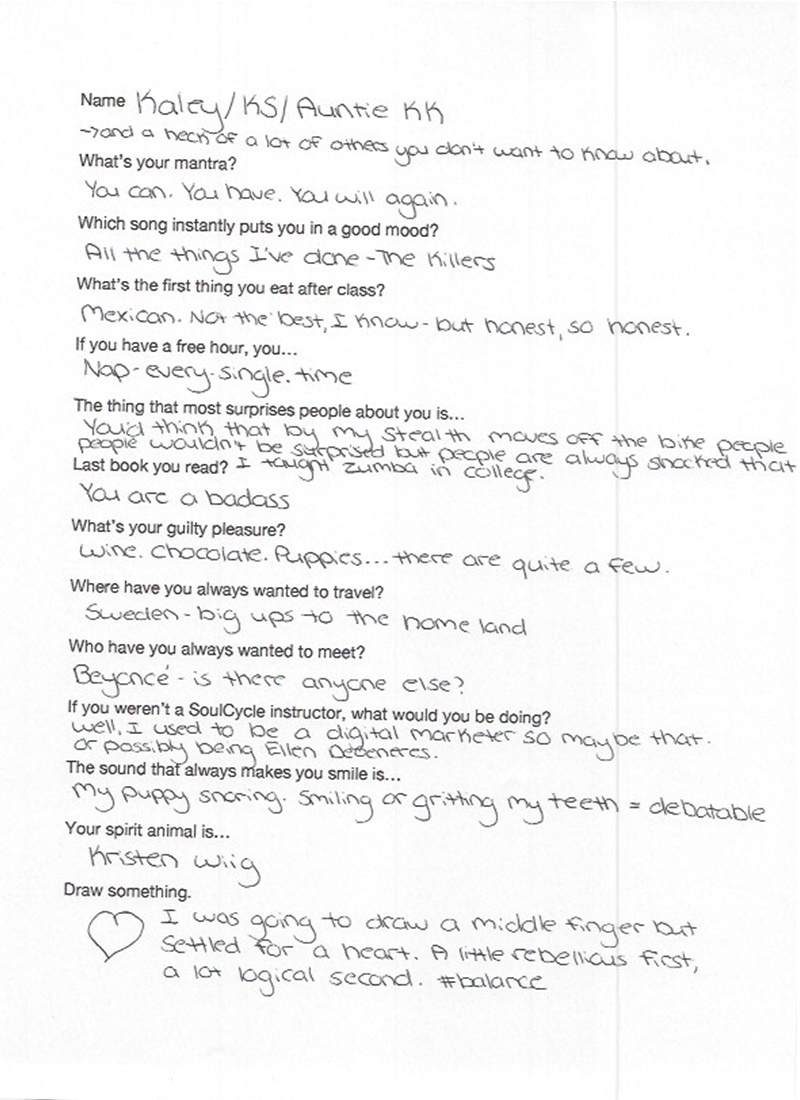 Name Kaley/KS/Auntie KK
→and a heck of a lot of others you don't want to know about.
What's your mantra?
You can. You have. You will again.
Which song instantly puts you in a good mood?
All the things I've done - The Killers
What's the first thing you eat after class?
Mexican. Not the best, I know - but honest, so honest.
If you have a free hour, you...
Nap - every - single. time
The thing that most surprises people about you is...
You'd think that by my stealth moves off the bike people
people wouldn't be surprised but people are always shocked that
Last book you read? I taught Zumba in college.
You are a badass
What's your guilty pleasure?
Wine. Chocolate. Puppies... there are quite a few.
Where have you always wanted to travel?
Sweden - big ups to the home land
Who have you always wanted to meet?
Beyoncé - is there anyone else?
If you weren't a SoulCycle instructor, what would you be doing?
Well, I used to be a digital marketer so maybe that.
or possibly being Ellen Degeneres.
The sound that always makes you smile is...
My puppy snoring. Smiling or gritting my teeth = debatable
Your spirit animal is...
Kristen Wiig
Draw something.
I was going to draw a middle finger but
settled for a heart. A little rebellious first,
a lot logical second. #balance